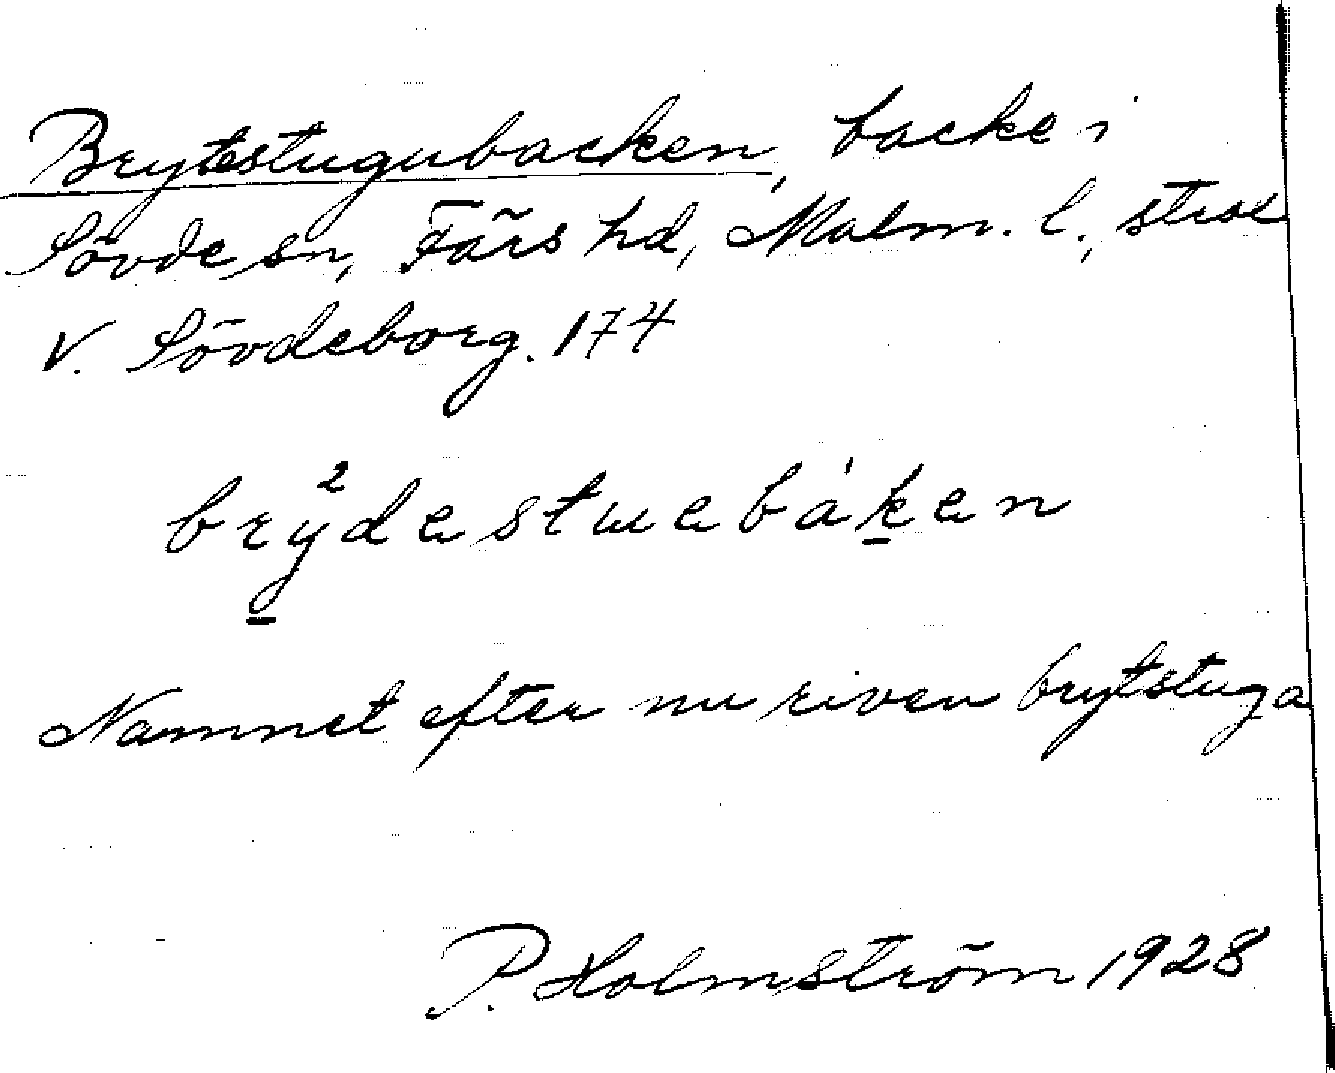 Brytestugubacken, backe i
Sövde sn, Färs hd, Malm. l., strax
V. Sövdeborg. 174
brÿ²destuebák̲en
Namnet efter nu riven brytstuga
P. Holmström 1928